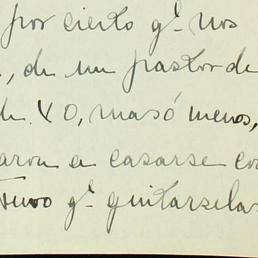 por cierto qᵉ nos
, de un pastor de
de. YO, masó menos,
aron a casarse con
tuvo qᵉ quitarselas